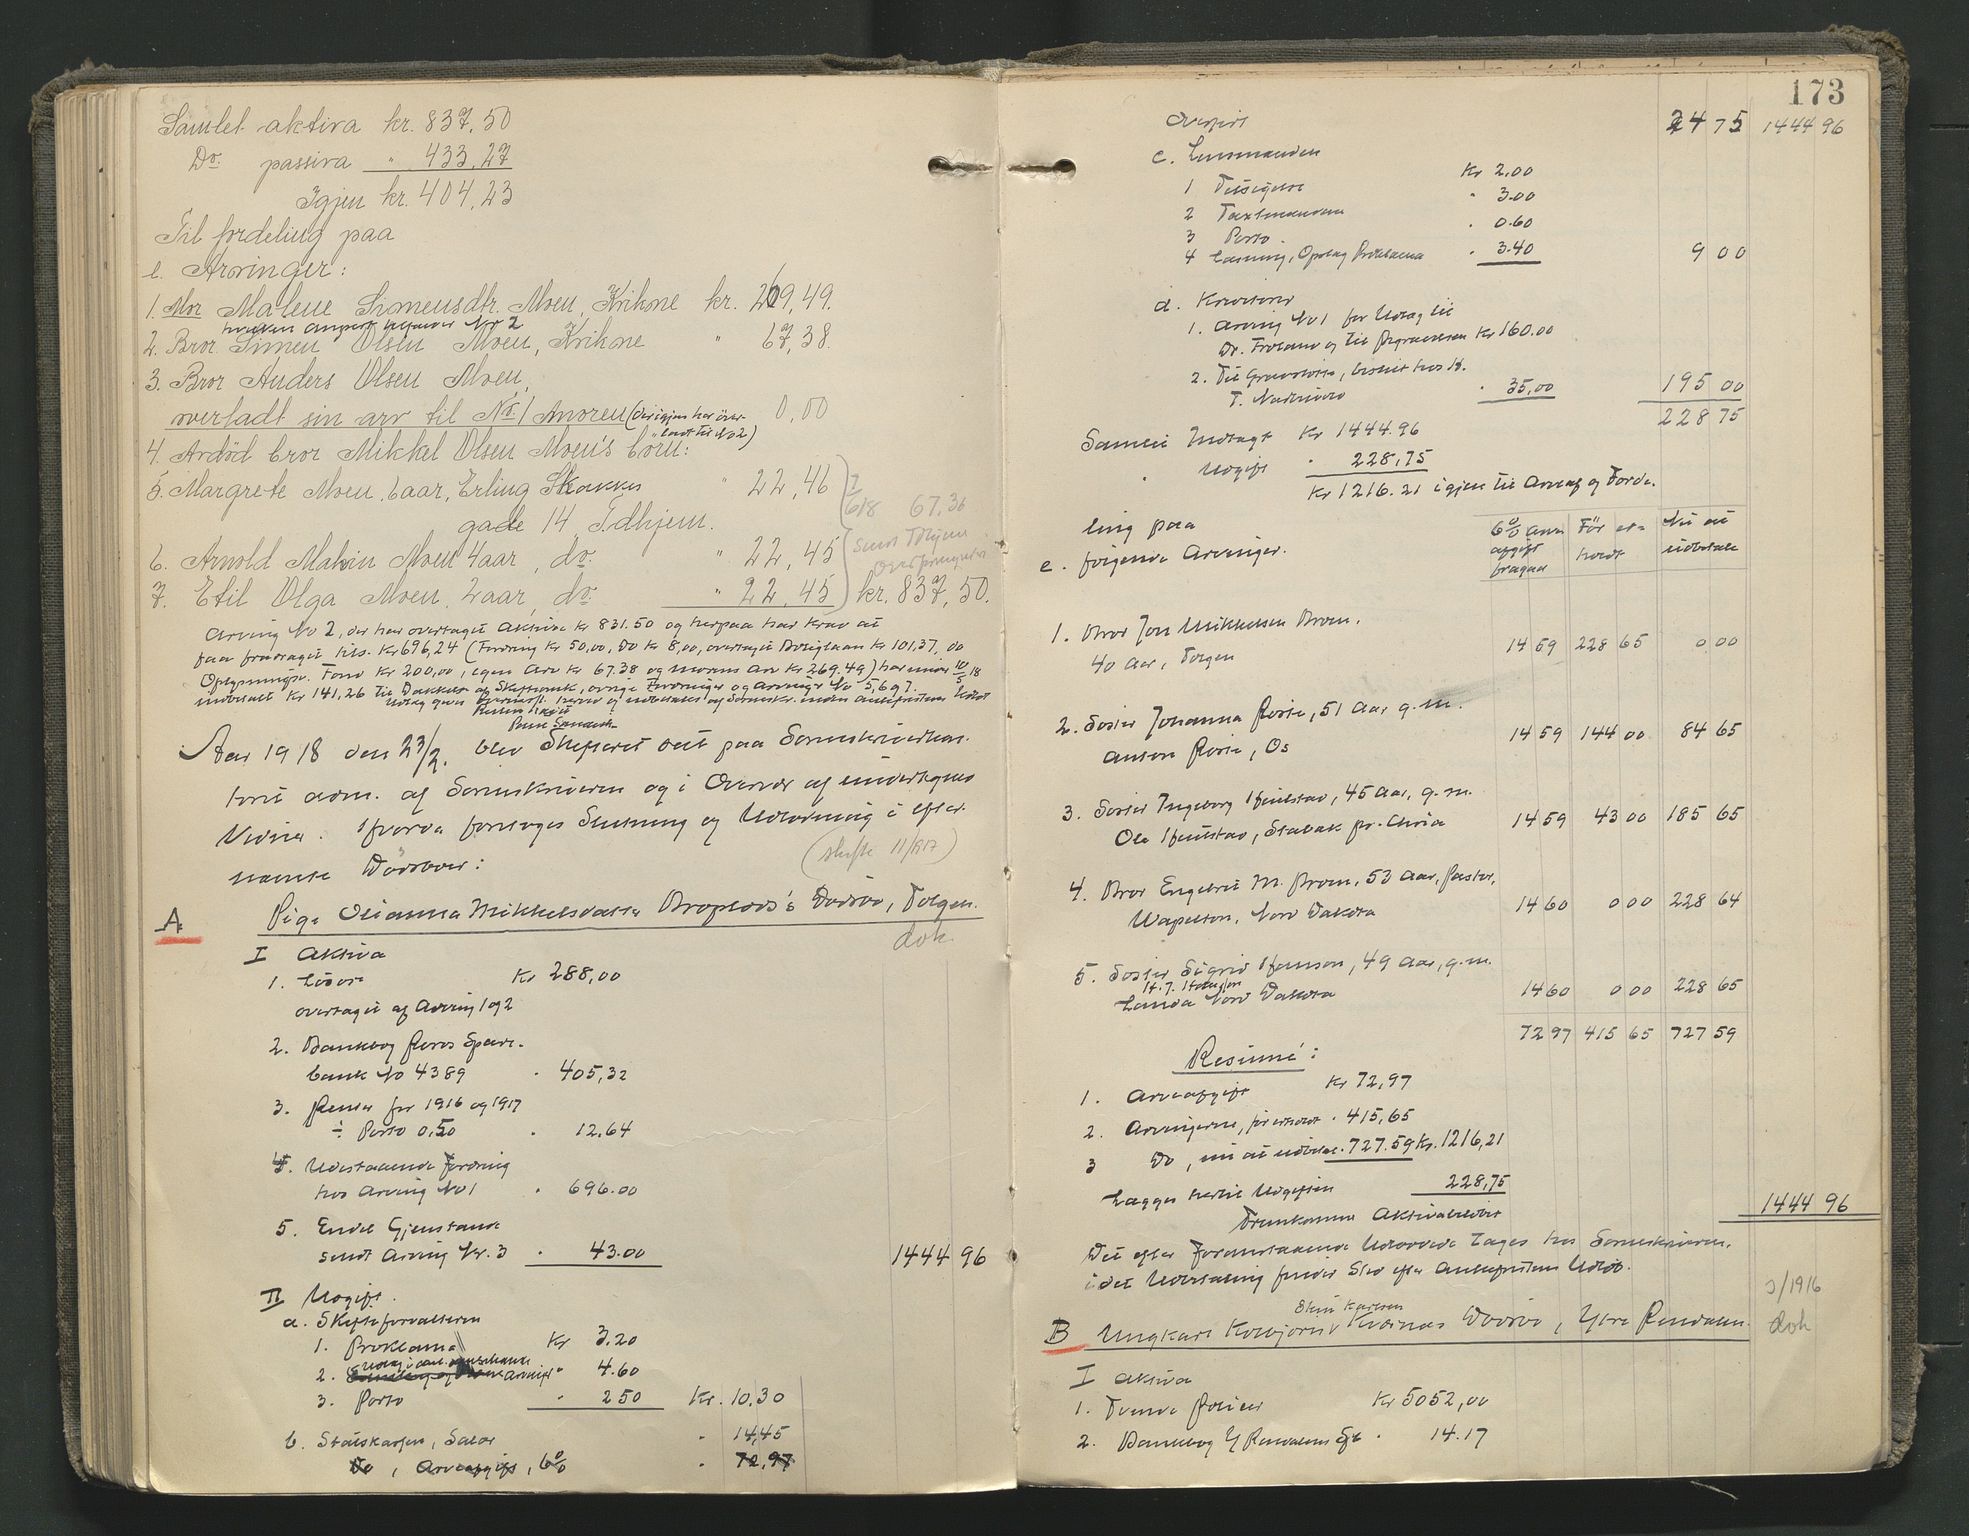 Samlet aktiva kr. 837,50
Do. passiva " 433,27
Igjen kr. 404,23
Til fordeling paa
e. Arvinger:
1. Mor Malene Simensdtr. Moen, Krihne kr. 269,49.
2
2. Bror Simen Olsen Moen, Krihne " 67,38.
3. Bror Anders Olsen Moen,
overladt sin arv til No 1 Moren (der igjen har over-
ladt til No 2) 0,00
4. Avdöd bror Mikkel Olsen Moen's börn:
5. Margrete Moen, 6 aar, Erling Skakkes
gade 14 T.dhjem. " 22,46
6/8 67.36
6. Arnold Martin Moen 4 aar, do. " 22,45
7. Etil Olga Moen, 2 aar, do. " 22,45 kr. 837,50.
Arving No 2, der har overtaget Aktiva kr 831.50 og herpaa har krav at
faa fradraget tils. Kr 696,24 (Fordring Kr 50,00, Do Kr 8,00, overtaget Boliglaan Kr 101,37, og
Oplysningsv. Fond Kr 200,00, egen Arv Kr 67.38 og morens Arv Kr 269.49) har under 10/5 18
indbetalt Kr 141,26 til Dækkelse af Skifteomk, øvrige Fordringer og Arvinger No 5,6 og 7.
Aar 1918 den 23/2. blev Skifteret sat paa Sorenskriverkon-
toret adm. af Sorenskriveren og i Overvær af undertegnede
Vidner. Hvorda foretoges Slutning og Udlodning i efter-
nævnte Dödsboer:
(skifte 11/1917)
A Pige Olianna Mikkelsdatter Broplads's Dødsbo, Tolgen.
dok.
I Aktiva
1. Lösøre Kr 288,00
overtaget af Arving 1 og 2
2. Bankbog Røros Spare-
bank No 4389 " 405,32
3. Renter for 1916 og 1917
÷ Porto 0,50 " 12.64
4. Udestaaende Fordring
hos Arving No 1 " 696.00
5. Endel Gjenstande
sendt Arving Nr. 3 " 43.00 1444 96
II Udgift.
a. Skifteforvalteren
1. Proklama Kr 3.20
2. " 4.60
3. Porto " 2 50 Kr. 10.30
b. Statskassen, Salær " 14,45
Do, Arveafgift, 6% " 72,97
173
Overført 24 75 1444 96
c. Lensmanden
1 Tilsigelse Kr 2.00
2 Taxtmændene " 3.00
3 Porto " 0.60
4 Læsning, Opslag Proklama " 3.40 9 00
d. Kreditorer
1. Arving No 1 for Udlæg til
Dr. Frolund og til Begravelsen Kr 160.00
2. Til Gravstøtte, bestilt hos H.
T. " 35,00 195 00
228 75
Samlet Indtægt Kr 1444.96
" Udgift " 228,75
Kr 1216.21 igjen til Arveaf. og Forde-
ling paa
e. følgende Arvinger.
6% Arve afgift fragaar
Før er- holdt
Nu at udbetale
1. Bror Jon Mikkelsen Broen,
40 Aar, Tolgen 14 59 228 65 0 00
2. Søster Johanna Rosie, 51 Aar g.m.
Anton Rosie, Os 14 59 144 00 84 65
3. Søster Ingeborg Hfeilstad, 45 Aar, g.m.
Ole Hfeilstad, Stabæk pr. Chria 14 59 43 00 185 65
4. Bror Engebret M. Broen, 53 Aar, Pastor,
Wapeton, Nord Dakota 14 60 0 00 228 64
5. Søster Sigrid Hanson, 49 Aar, g.m.
Landa Nord Dakota 14 60 0 00 228 65
72 97 415 65 727 59
Resümé:
1. Arveafgift Kr 72,97
2. Arvingerne, før erholdt " 415,65
3 Do, nu at udbetale " 727.59 Kr. 1216,21
Lægges hertil Udgiften 228,75
Fremkommer Aktivabeløbet 1444 96
Det efter Foranstaaende Udlodede tages hos Sorenskriveren,
idet Udbetaling finder Sted efter Ankefristens Udløb.
3/1916
B Ungkarl Kolbjørn Kværnæs Dødsbo, Ytre Rendalen. dok
I Aktiva
1. Tvende Poliser Kr 5052,00
2. Bankbog Y Rendalens Spb " 14.17